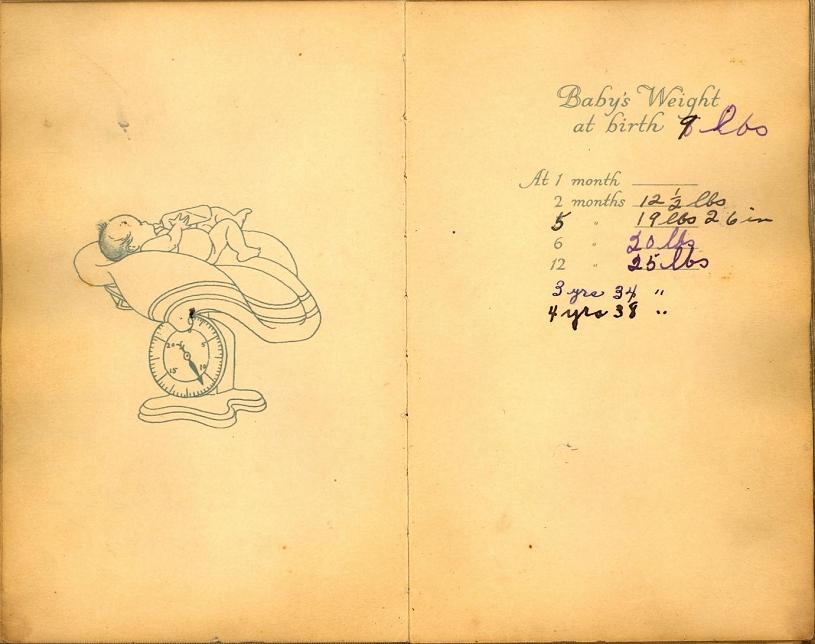 20
5
15
10
Baby's Weight
at birth 9 lbs
At 1 month
2 months 12 1/2 lbs
5 " 19 lbs 26 in
6 " 20 lbs
12 " 25 lbs
3 yrs 34 "
4 yrs 38 "